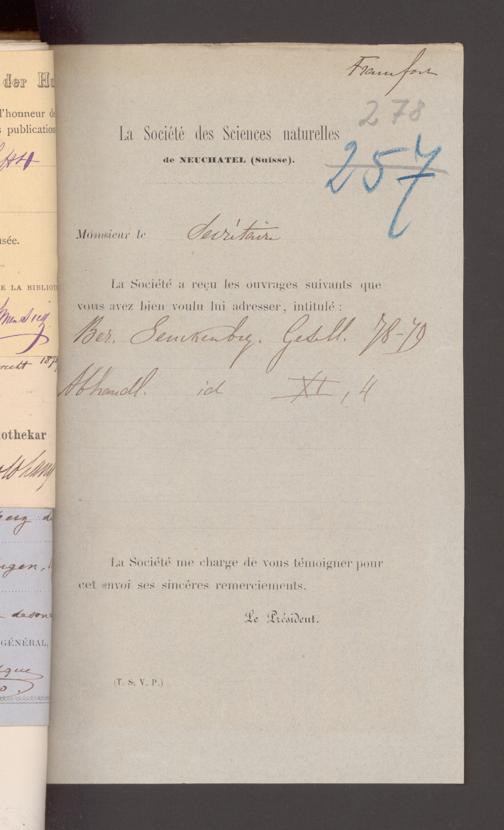 Francfort
278
La Société des Sciences naturelles
257
de NEUCHATEL (Suisse).
Monsieur le Secrétaire
La Société a reçu les ouvrages suivants que
vous avez bien voulu lui adresser, intitulé :
Ber. Senckenbg. Gesell. 78-79
Abhandl. id XI, 4
La Société me charge de vous témoigner pour
cet envoi ses sincères remerciements.
Le Président.
(T. S. V. P.)
der
l'honneur
publication
sée.
E LA BIBLIO
othekar
ngen,
GÉNÉRAL,